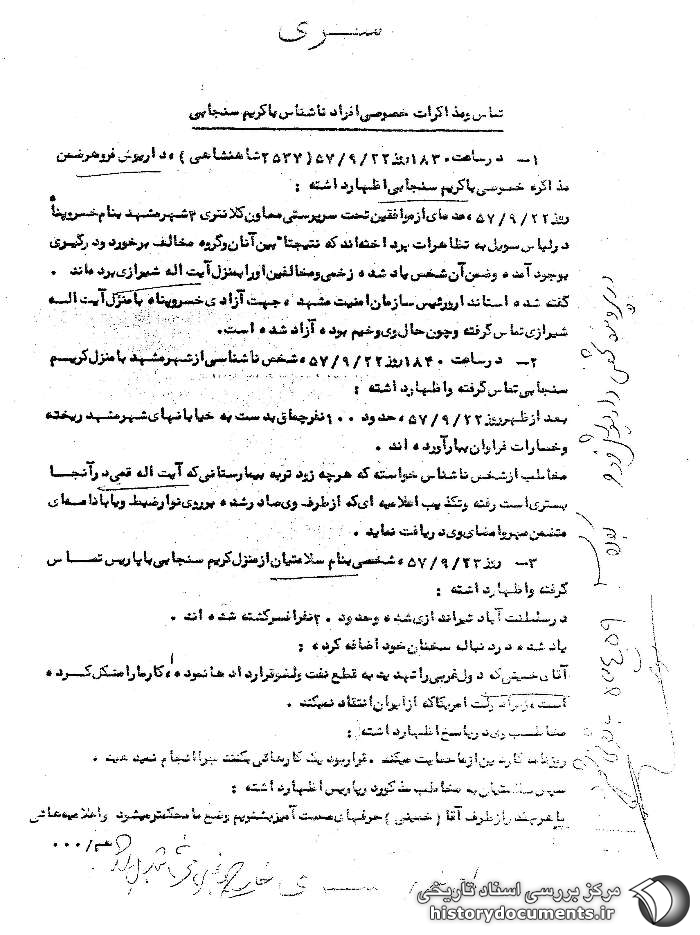 سری
تماس ومذاکرات خصوصی افراد ناشناس با کریم سنجابی
۱- در ساعت ۱۸۳۰ روز ۵۷/۹/۲۲ (۲۵۳۷ شاهنشاهی)، داریوش فروهر ضمن
مذاکره خصوصی با کریم سنجابی اظهار داشته :
روز ۵۷/۹/۲۲، عده‌ای از موافقین تحت سرپرستی معاون کلانتری ۳ شهر مشهد بنام خسروپناه
در لباس سویل به تظاهرات پرداخته‌اند که نتیجتا" بین آنان وگروه مخالف برخورد و درگیری
بوجود آمده وضمن آن شخص یاد شده زخمی ومخالفین او را بمنزل آیت اله شیرازی برده‌اند .
گفته شده استاندار ورئیس سازمان امنیت مشهد، جهت آزادی خسروپناه با منزل آیت اله
شیرازی تماس گرفته وچون حال وی وخیم بوده آزاد شده است.
۲- در ساعت ۱۸۴۰ روز ۵۷/۹/۲۲، شخص ناشناسی از شهر مشهد با منزل کریم
سنجابی تماس گرفته واظهار داشته :
بعد از ظهر روز ۵۷/۹/۲۲، حدود ۱۰۰ نفر چماق بدست به خیابانهای شهر مشهد ریخته
وخسارات فراوان ببار آورده اند .
مخاطب از شخص ناشناس خواسته که هرچه زودتر به بیمارستانی که آیت اله قمی در آنجا
بستری است رفته وتکذیب اعلامیه ای که از طرف وی صادر شده بر روی نوار ضبط ویا با نامه‌ای
متضمن مهر وامضای وی دریافت نماید .
۳- روز ۵۷/۹/۲۳، شخصی بنام سلامتیان از منزل کریم سنجابی با پاریس تماس
گرفته واظهار داشته :
در سلطنت آباد تیراندازی شده وحدود ۲۰ نفر افسر کشته شده اند .
یاد شده در دنباله سخنان خود اضافه کرده :
آقای خمینی که دول غربی را تهدید به قطع نفت ولغو قراردادها نموده، کار ما را مشکل کرده
است، زیرا دولت امریکا که از ایران انتقاد نمیکند .
مخاطب وی در پاسخ اظهار داشته :
روزنامه گاردین از ما حمایت میکند . قرار بود یک کارهائی بکنند چرا انجام نمیدهید .
سپس سلامتیان به مخاطب مذکور در پاریس اظهار داشته :
ما هرچند از طرف آقا (خمینی) حرفهای محبت آمیز بشنویم وضع ما محکمتر میشود واعلامیه‌هائی
هم/۰۰۰
سری
مرکز بررسی اسناد تاریخی
historydocuments.ir